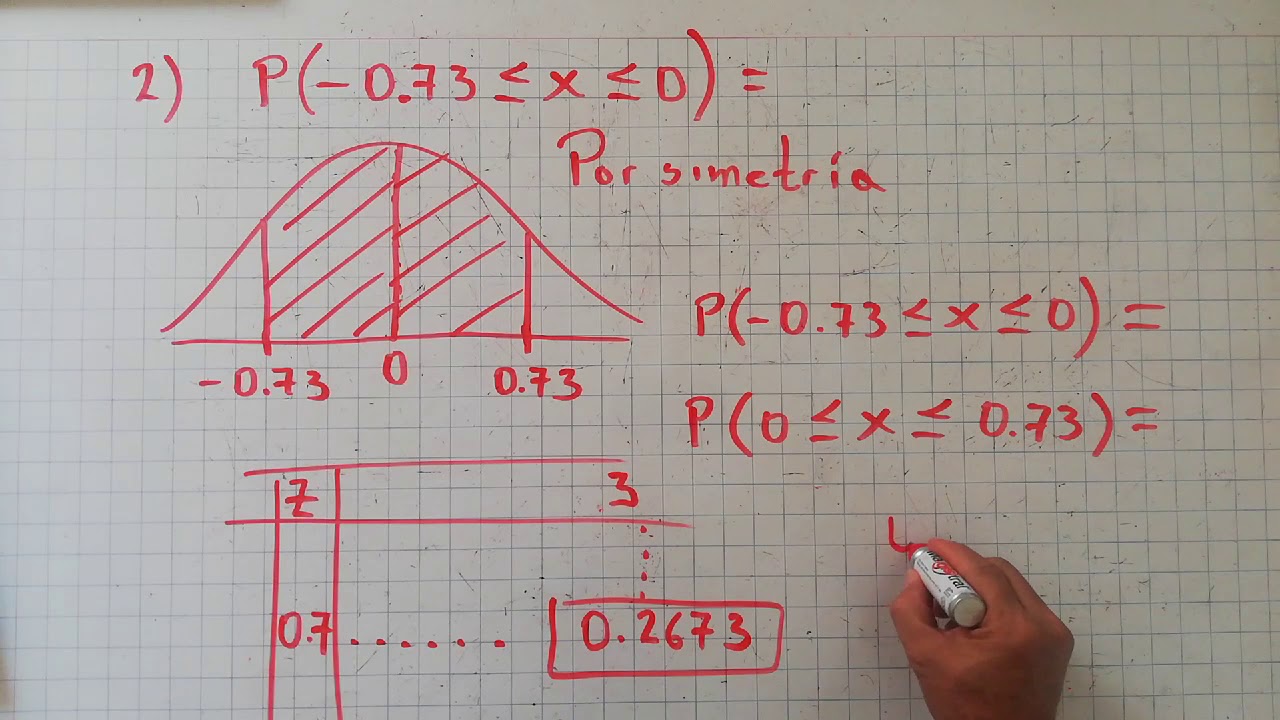 2) P(-0.73 ≤ x ≤ 0) =
Por simetría
P(-0.73 ≤ x ≤ 0) =
-0.73 0 0.73
P(0 ≤ x ≤ 0.73) =
Z 3
0.7 ....... 0.2673